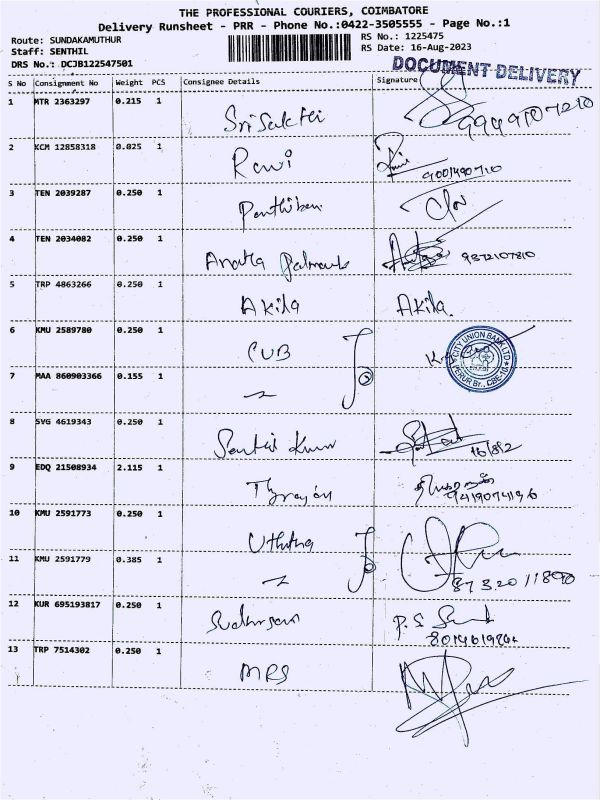 THE PROFESSIONAL COURIERS, COIMBATORE
Delivery Runsheet - PRR - Phone No.:0422-3505555 - Page No.:1
Route: SUNDAKAMUTHUR
Staff: SENTHIL
DRS No.: DCJB122547501
RS No.: 1225475
RS Date: 16-Aug-2023
DOCUMENT DELIVERY
S No Consignment No Weight PCS Consignee Details Signature
1 MTR 2363297 0.215 1 Sri Sakthi
2 KCM 12858318 0.025 1 Ravi
3 TEN 2039287 0.250 1
4 TEN 2034082 0.250 1 9872107810
5 TRP 4863266 0.250 1 Akila Akila.
6 KMU 2589780 0.250 1 CUB CITY UNION BANK LTD PERUR Br., CBE-10
7 MAA 860903366 0.155 1
8 SVG 4619343 0.250 1 Senthil Kumar
9 EDQ 21508934 2.115 1
10 KMU 2591773 0.250 1
11 KMU 2591779 0.385 1
12 KUR 695193817 0.250 1 P.S
13 TRP 7514302 0.250 1 MRS